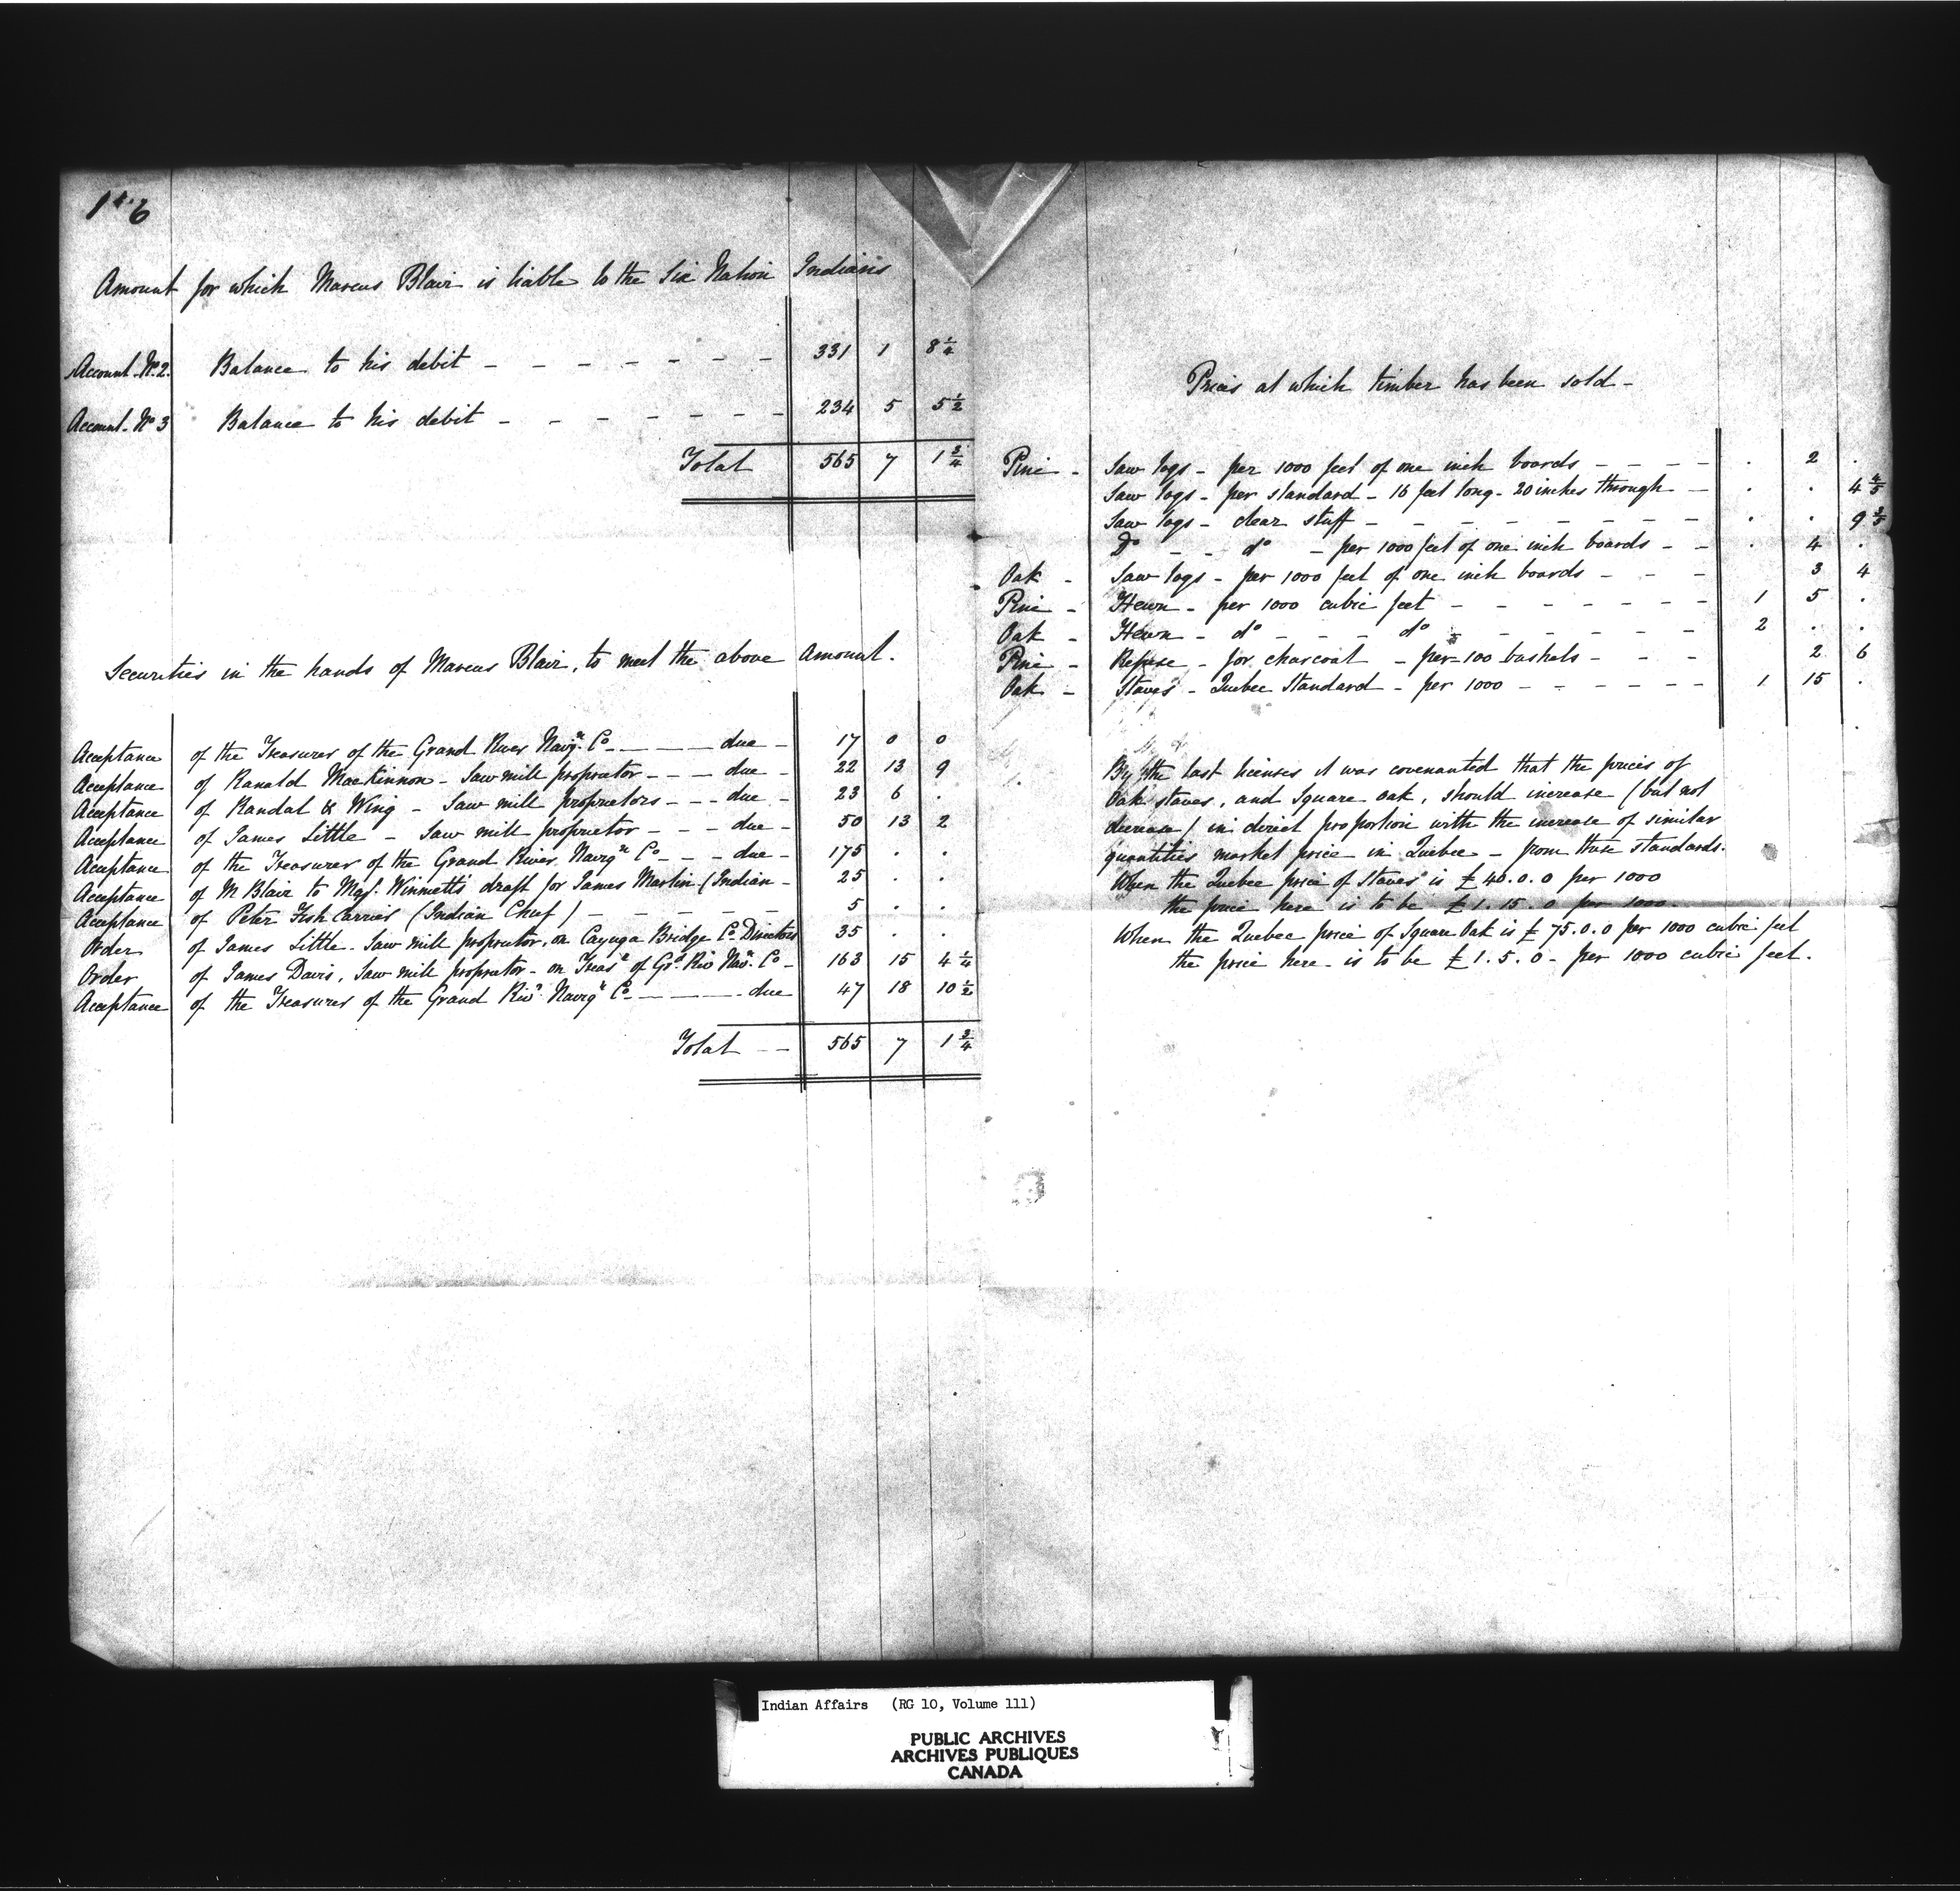 116
Amount for which Marcus Blair is liable to the Six Nation Indians
Account. No. 2. Balance to his debit - - - - - - - 331 1 8 1/4
Account. No 3 Balance to his debit - - - - - - - 234 5 5 1/2
Total 565 7 1 3/4
Securities in the hands of Marcus Blair, to meet the above Amount.
Acceptance of the Treasurer of the Grand River Navgn. Co - - - - due - 17 0 0
Acceptance of Ranald MacKinnon - Saw mill proprietor - - - due - 22 13 9
Acceptance of Randal & Wing - Saw mill proprietors - - - due - 23 6 .
Acceptance of James Little - Saw mill proprietor - - - due - 50 13 2
Acceptance of the Treasurer of the Grand River Navign Co - - - due - 175 . .
Acceptance of M Blair to Majr. Winnett's draft for James Martin (Indian - 25 . .
Acceptance of Peter Fish Carrier (Indian Chief) - - - - - - 5 . .
Order of James Little - Saw mill proprietor, on Cayuga Bridge Co. Directors 35 . .
Order of James Davis, Saw mill proprietor - on Treasr of Gd. Riv Navn. Co - 163 15 4 1/4
Acceptance of the Treasurer of the Grand Rivr. Navign Co - - - - due 47 18 10 1/2
Total - - 565 7 1 3/4
Prices at which timber has been sold -
Pine - Saw logs - per 1000 feet of one inch boards - - - - . 2 .
Saw logs - per standard - 16 feet long - 20 inches through - . . 4 4/5
Saw logs - clear stuff - - - - - - - - . . 9 3/5
Do - - do - per 1000 feet of one inch boards - - . 4 .
Oak - Saw logs - per 1000 feet of one inch boards - - - 3 4
Pine - Hewn - per 1000 cubic feet - - - - - - - 1 5 .
Oak - Hewn - do - - - do - - - - - - 2 . .
Pine - Refuse - for charcoal - per 100 bushels - - - 2 6
Oak - Staves - Quebec Standard - per 1000 - - - - - - 1 15 .
By the last licenses it was covenanted that the prices of
Oak staves, and Square oak, should increase (but not
decrease) in direct proportion with the increase of similar
quantities market price in Quebec - from these standards.
When the Quebec price of Staves is £40.0.0 per 1000
the price here is to be £1.15.0 per 1000.
When the Quebec price of Square Oak is £75.0.0 per 1000 cubic feet
the price here - is to be £1.5.0 - per 1000 cubic feet.
Indian Affairs (RG 10, Volume 111)
PUBLIC ARCHIVES
ARCHIVES PUBLIQUES
CANADA